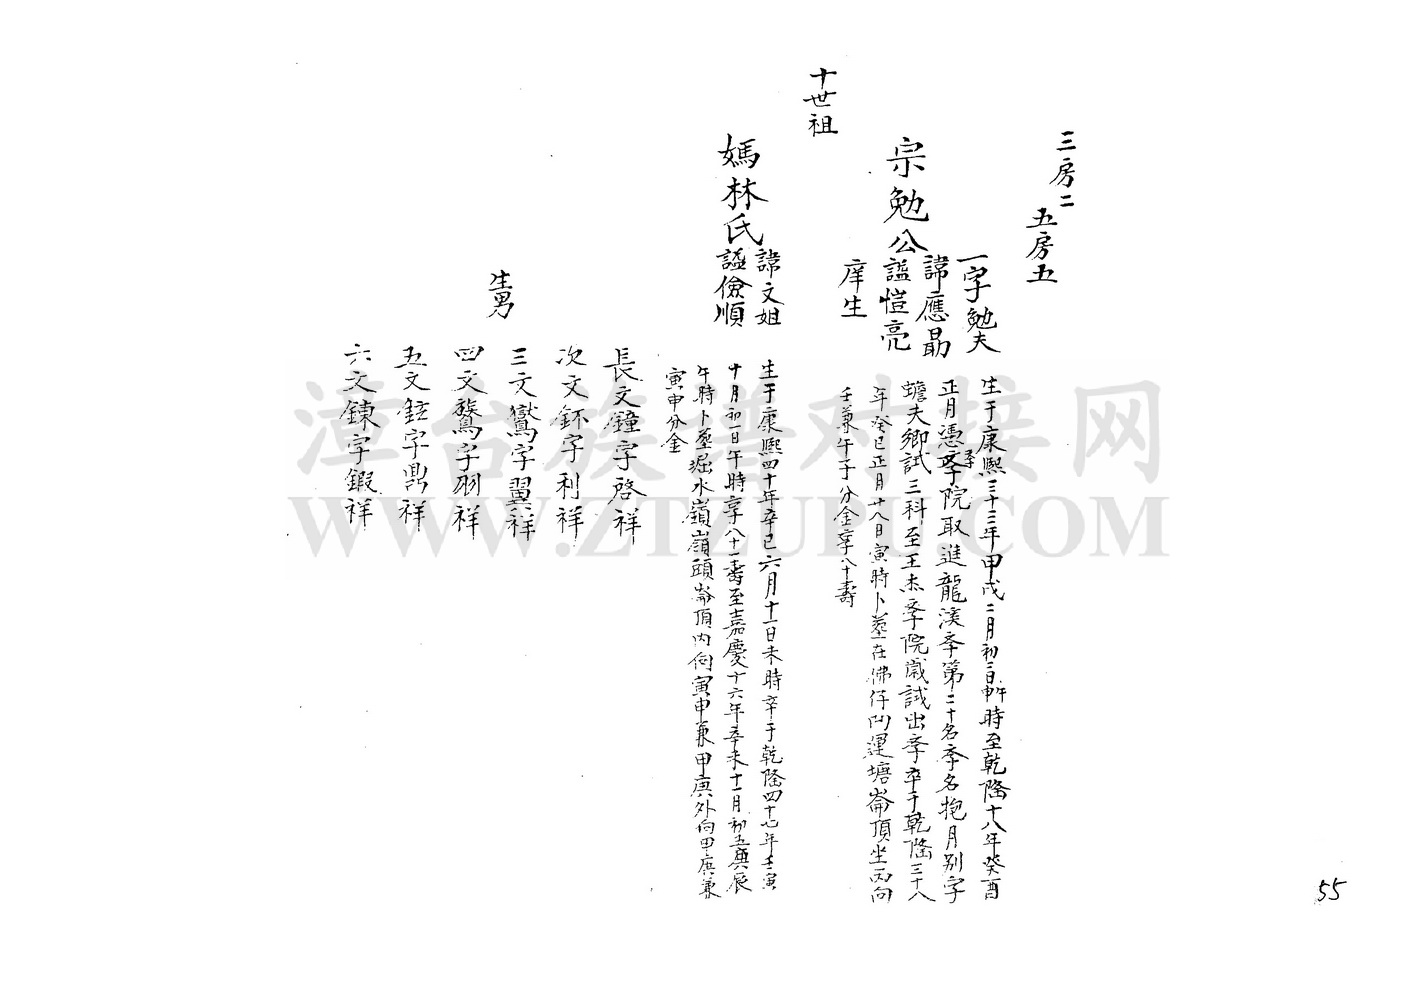 三房二
五房五
十世祖
宗勉公
一字勉夫
諱應勗
謚愷亮
庠生
生于康熙三十三年甲戌二月初二日時至乾隆十八年癸酉
正月憑季院取進龍溪季第二十名季名抱月別字
蟾夫鄉試三科至王杰季院歲試出季卒于乾隆三十八
年癸巳正月十八日寅時卜葬在佛仔運塘崙頂坐丙向
壬兼午子分金享八十壽
媽林氏
諱文姐
謚儉順
生于康熙四十年辛巳六月十一日未時卒于乾隆四十七年壬寅
十月初一日午時享八十一壽至嘉慶十六年辛未十一月初五庚辰
午時卜葬堀水嶺嶺頭崙頂內向寅申兼甲庚外向甲庚兼
寅申分金
生男
長文鐘字啓祥
次文鉟字利祥
三文鸑字翼祥
四文鷟字羽祥
五文鉉字鼎祥
六文鍊字鍛祥
55
漳台族谱对接网
WWW.ZTZUPU.COM